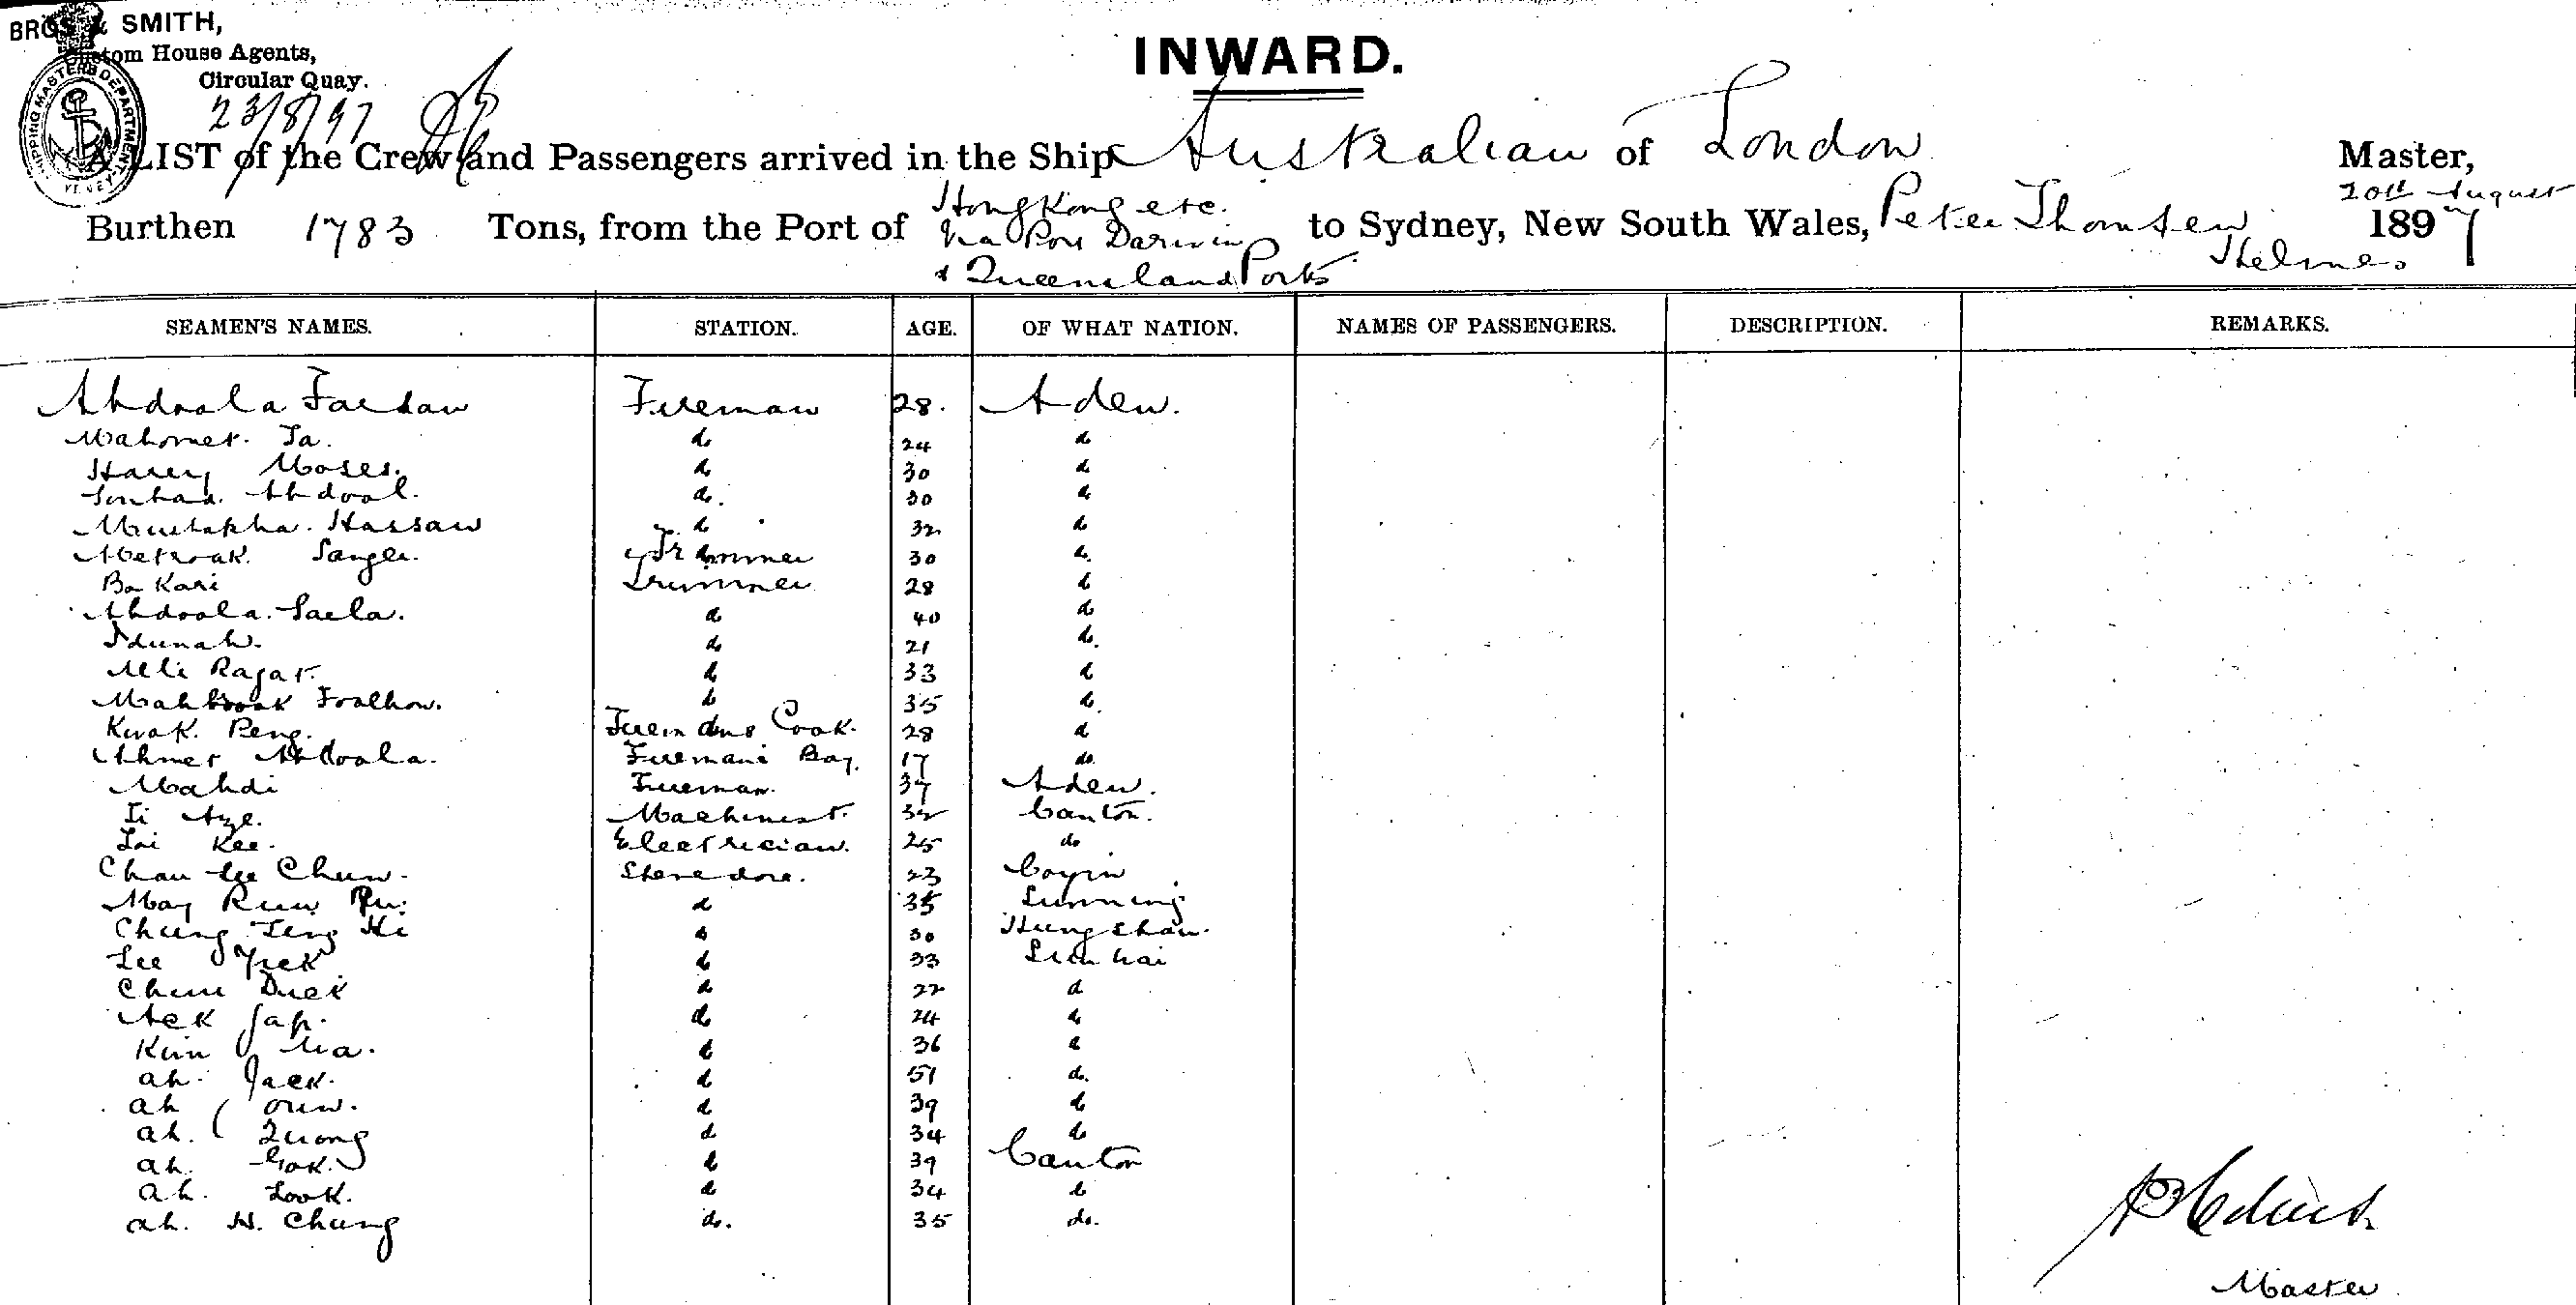 BROS & SMITH,
Custom House Agents,
Circular Quay.
SHIPPING MASTERS DEPARTMENT
SYDNEY
23/8/97
INWARD.
A LIST of the Crew and Passengers arrived in the Ship Australian of London Master,
Burthen 1783 Tons, from the Port of Hong Kong etc. via Port Darwin & Queensland Ports to Sydney, New South Wales, Peter Thomsen Helmes 20th August 1897
SEAMEN'S NAMES. STATION. AGE. OF WHAT NATION. NAMES OF PASSENGERS. DESCRIPTION. REMARKS.
Abdoola Faesaw Fireman 28. Aden.
Mahomet. Ja. do 24 do
Harry Moses. do 30 do
Abdool. do. 30 do
Mustapha. Hassan do 32 do
Trimmer 30 do
Ba Kari Trimmer 28 do
Abdoola. Saela. do 40 do
do 21 do
Alli Ragat. do 33 do
Mahbrook do 35 do
Kwok. Peng. Firemans Cook. 28 do
Ahmet Abdoola. Firemans Boy. 17 do
Mahdi Fireman. 37 Aden.
Ii Aze. Machinist. 32 Canton.
Lai Kee. Electrician. 25 do
Chan Chun. Stevedore. 23
May Kuw do 35 Sunning
Chung Teng Ki do 30 Hungshan.
Lee Yick do 33 Sunhai
Chun Duck do 22 do
Ack Jap. do 24 do
Kim Wa. do 36 do
ah. Jack. do 51 do.
ah do 39 do
ah. Quong do 34 do
ah. Gok. do 39 Canton
ah. Look. do 34 do
ah. H. Chung do. 35 do.
Master